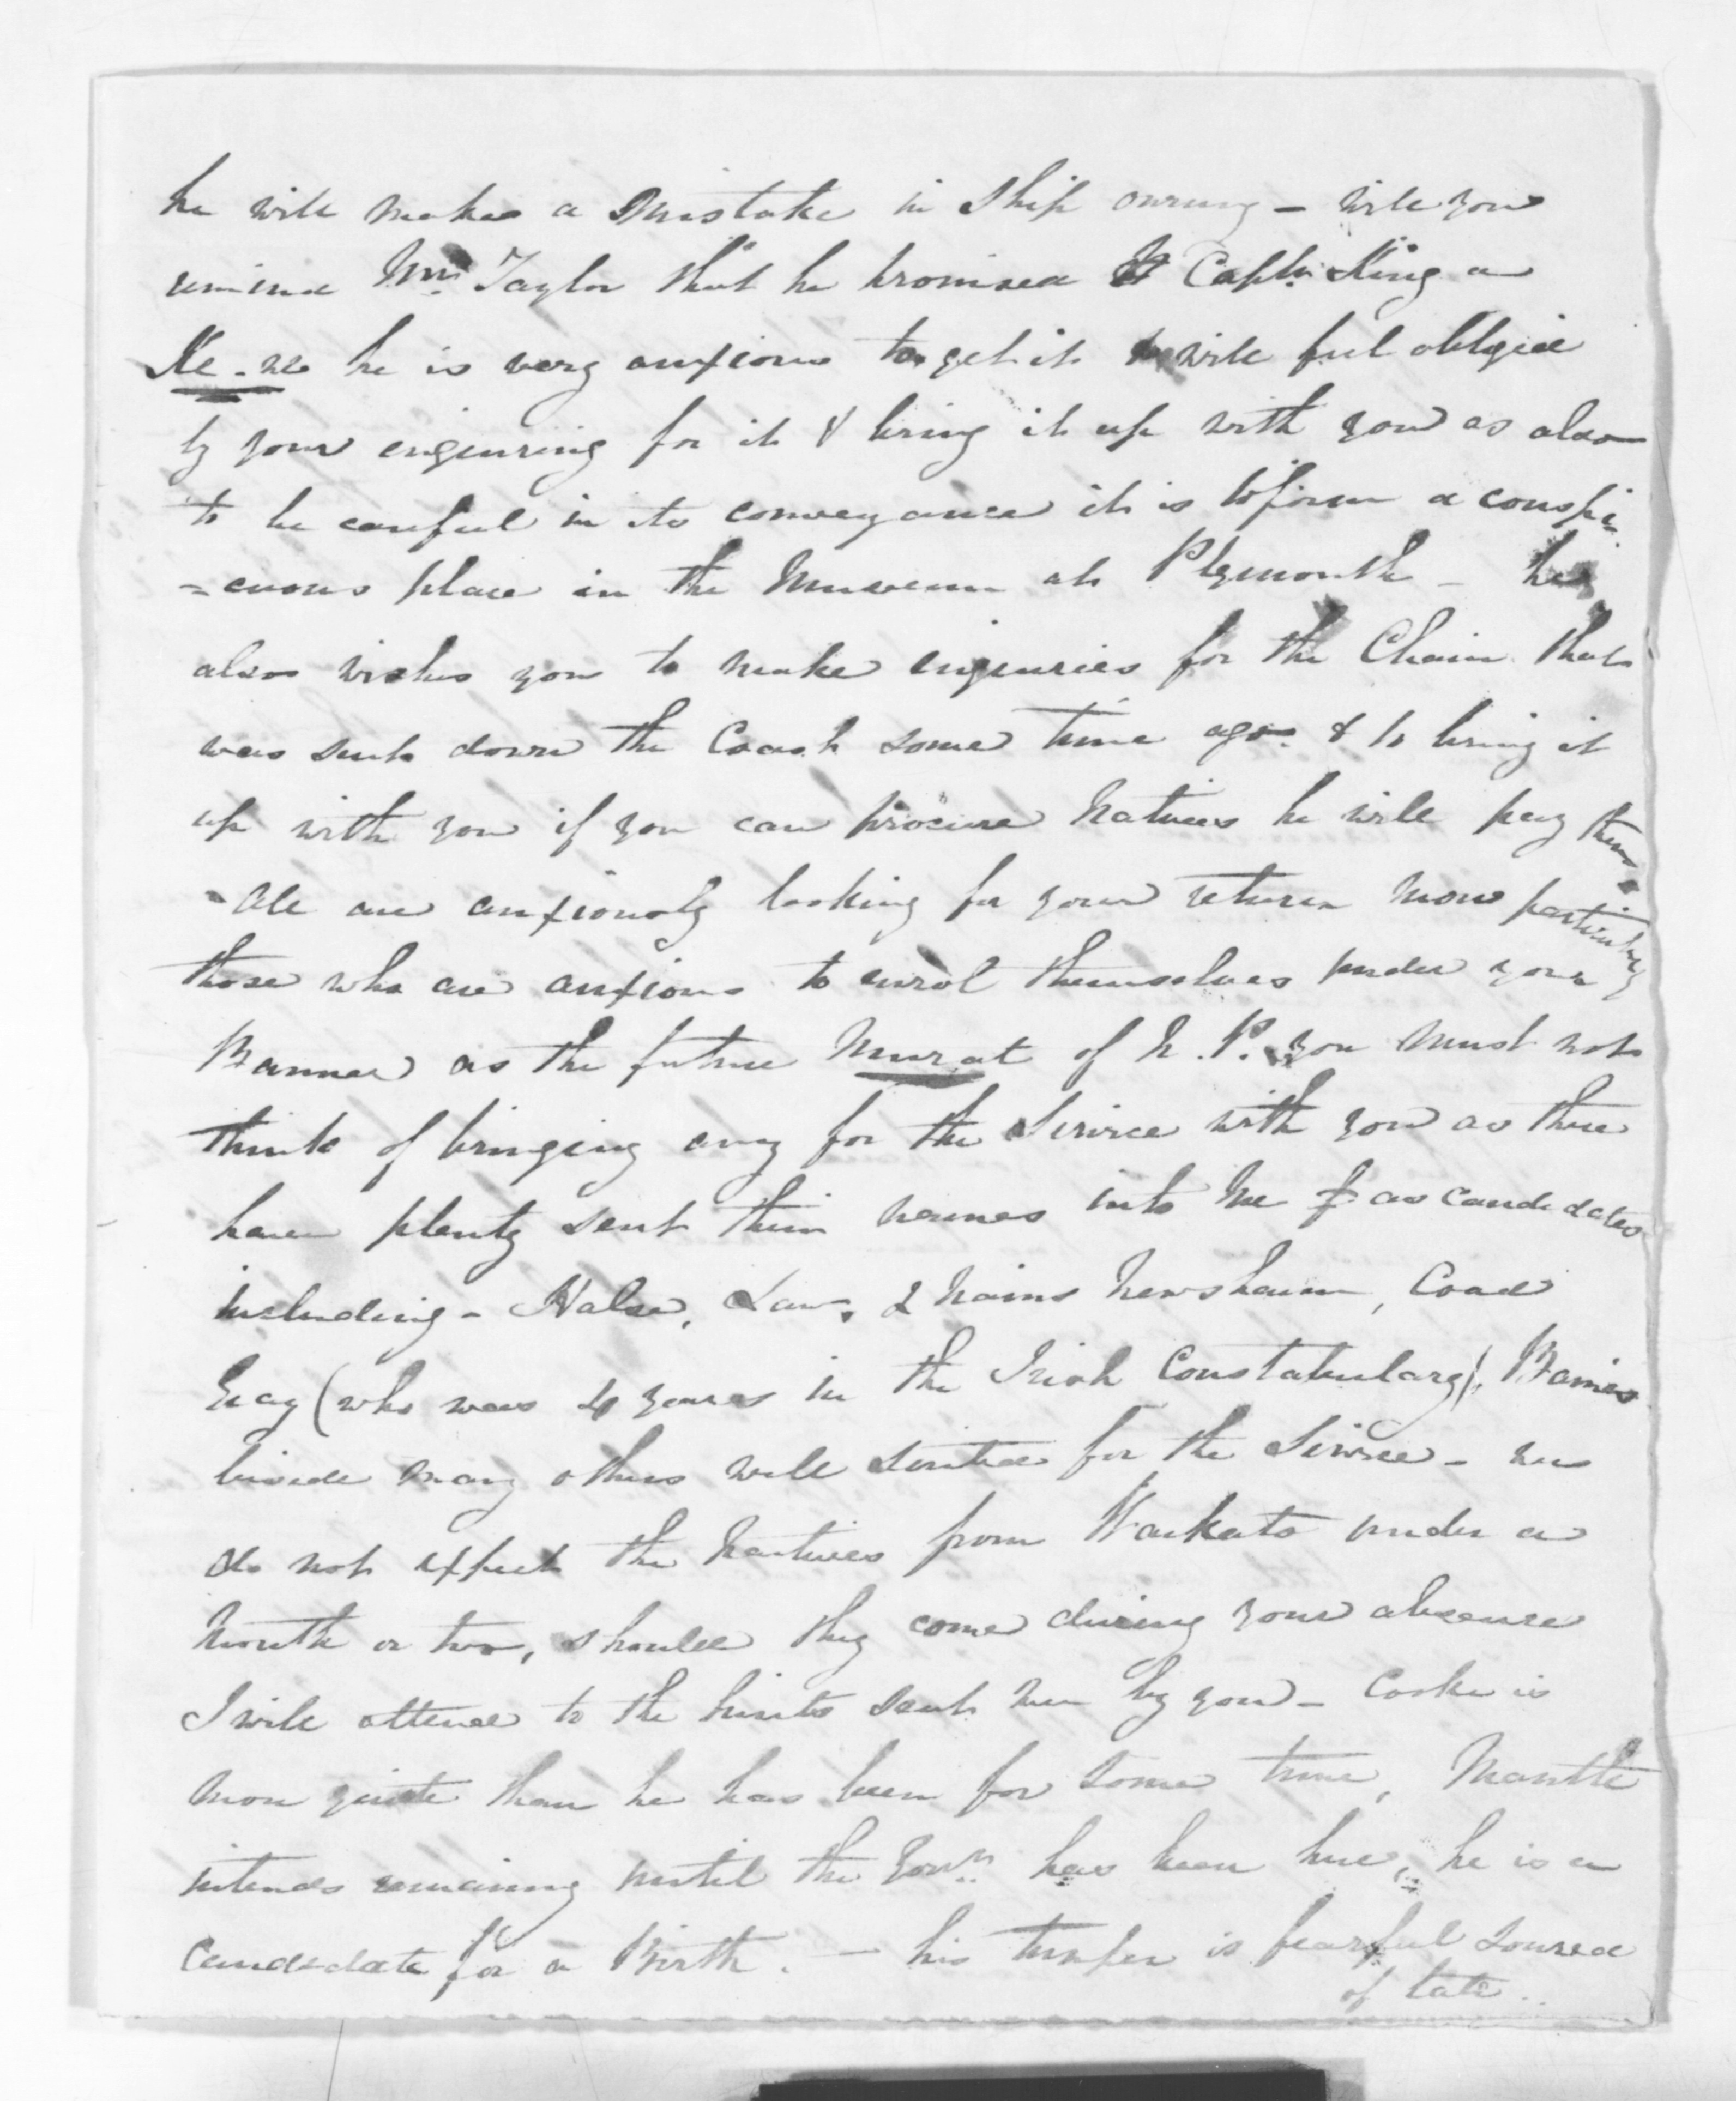 he will make a mistake in Ship owning - will you
remind Mr. Taylor that he promised Captn. King a
he is very anxious to get it & will feel obliged
by your enquiring for it & bring it up with you as also
to be careful in its conveyance it is to form a conspi
=cuous place in the Museum at Plymouth - he
also wishes you to make enquiries for the Chain that
was sent down the Coast some time ago & to bring it
up with you if you can procure Natives he will pay them
- All are anxiously looking for your return more particularly
those who are anxious to enrol themselves under your
Banner as the future Murat of N. P. you must not
think of bringing any for the Service with you as there
have plenty sent their names into me as candidates
including - Halse, Law, & Nairns Newsham, Coad
Gray (who was 4 years in the Irish Constabulary), Baines
beside many others well suited for the Service - we
do not expect the Natives from Waikato under a
Month or two, should they come during your absence
I will attend to the hints sent me by you - Cooke is
more quiete than he has been for some time,
intends remaining until the Govr. has been here, he is a
candidate for a Birth. - his temper is fearful soured
of late..